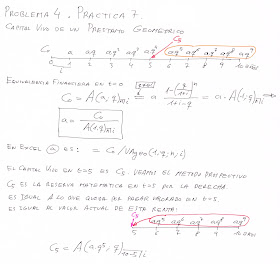 PROBLEMA 4. PRACTICA 7.
CAPITAL VIVO DE UN PRESTAMO GEOMETRICO
C5
C0 a aq aq² aq³ aq⁴ aq⁵ aq⁶ aq⁷ aq⁸ aq⁹
0 1 2 3 4 5 6 7 8 9 10 AÑOS
i
EQUIVALENCIA FINANCIERA EN t=0
C0 = A(a;q)n⌉i = a · 1-(q/1+i)ⁿ / 1+i-q = a · A(1,q)n⌉i
a = C0 / A(1,q)n⌉i
EN EXCEL a ES: = C0/VAgeo(1;q;n;i)
EL CAPITAL VIVO EN t=5 ES C5. VEAMOS EL METODO PROSPECTIVO
C5 ES LA RESERVA MATEMATICA EN t=5 POR LA DERECHA
ES IGUAL A LO QUE QUEDA POR PAGAR VALORADO EN t=5.
ES IGUAL AL VALOR ACTUAL DE ESTA RENTA:
C5 aq⁵ aq⁶ aq⁷ aq⁸ aq⁹
5 6 7 8 9 10 AÑOS
C5 = A(a·q⁵; q)10-5⌉i